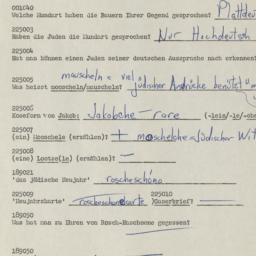 001C40
Welche Mundart haben die Bauern Ihrer Gegend gesprochen? Plattdeu
225003
Haben die Juden die Mundart gesprochen? Nur Hochdeutsch
225004
Hat man können einen Juden seiner deutschen Aussprache nach erkennen?
225005 mauscheln = viel jüdischer Ausdrücke benützt u
Was heisst mooscheln/mauscheln?
225006
Koseform von Jakob: Jakobche - rare (-leis/-le/-che
225007
(ein) Mooschele (erzählen)? + moschelche = jüdischer Wit
225008
(ein) Lootse(le) (erzählen)? —
189021
'das jüdische Neujahr' roscheschóno
225009 225010
'Neujahrskarte' roscheschonekarte Kooserbrief? —
189050
Was hat man zu Ihnen von Rosch-Haschoone gegessen?
189050